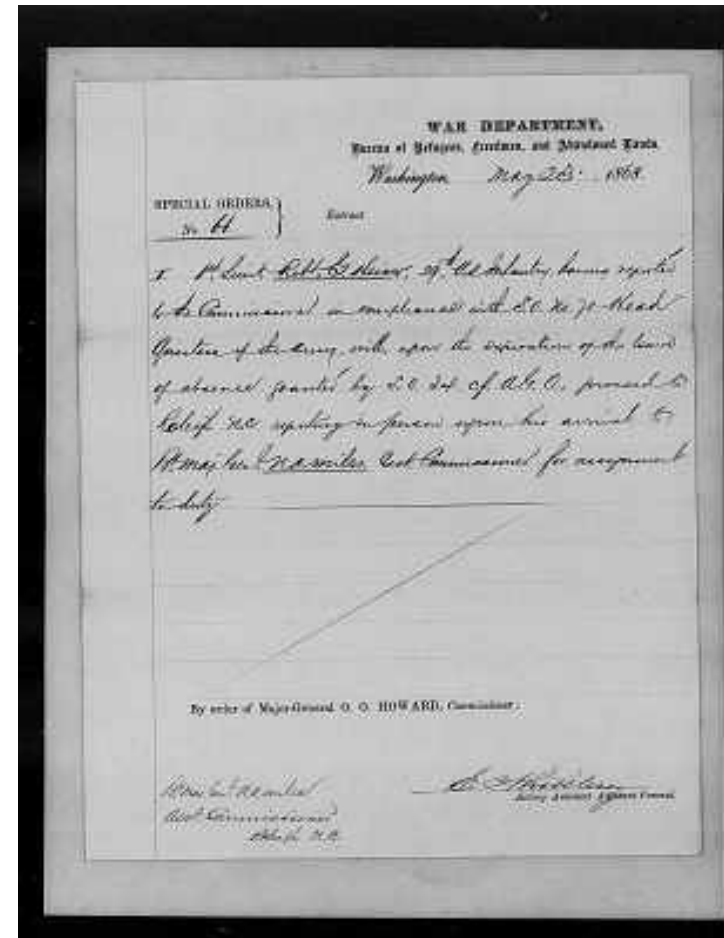 WAR DEPARTMENT,
Bureau of Refugees, Freedmen, and Abandoned Lands.
Washington May 1868
SPECIAL ORDERS,
No. 64
Extract
I 1st Lieut Robt. 29th U.S. Infantry, having reported
to the Commissioner in compliance with S.O. No 70 Head
Quarters of the Army, will, upon the expiration of the leave
of absence granted by S.O. of A.G.O. proceed to
Raleigh N.C. reporting in person upon his arrival to
Bt Maj Genl N.A. Miles Asst Commissioner for assignment
to duty
By order of Major-General O. O. HOWARD, Commissioner:
Bt Maj Genl N A Miles
Asst Commissioner
Raleigh N.C.
Acting Assistant Adjutant General.